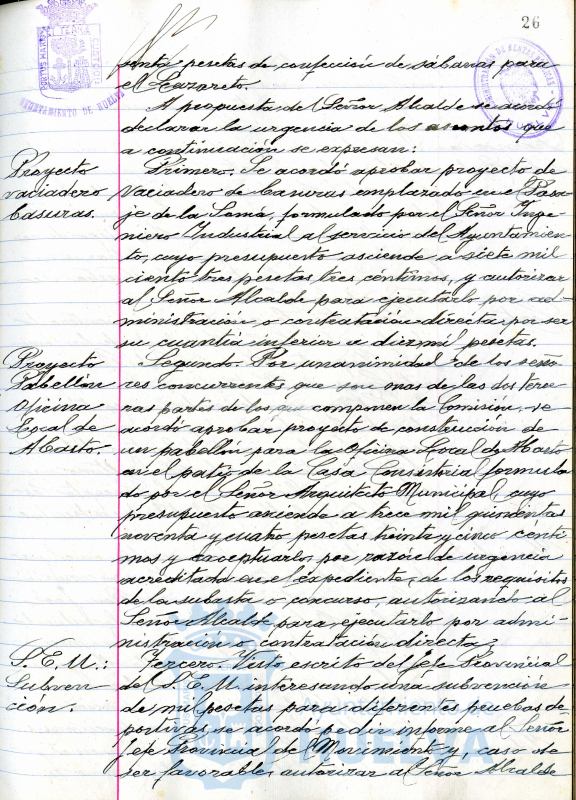 26
senta pesetas de confección de sábanas para
el Lazareto.
A propuesta del Señor Alcalde se acordó
declarar la urgencia de los asuntos que
a continuación se expresan:
Proyecto
vaciadero
basuras.
Primero. Se acordó aprobar proyecto de
vaciadero de basuras emplazado en el Pasa-
je de la Soma, formulado por el Señor Inge-
niero Industrial al servicio del Ayuntamien-
to, cuyo presupuesto asciende a siete mil
ciento tres pesetas tres céntimos, y autorizar
al Señor Alcalde para ejecutarlo por ad-
ministración o contratación directa por ser
su cuantía inferior a diez mil pesetas.
Proyecto
Pabellón
Oficina
Local de
Abasto.
Segundo. Por unanimidad de los seño-
res concurrentes que son mas de las dos terce-
ras partes de los que componen la Comisión, se
acordó aprobar proyecto de construcción de
un pabellón para la Oficina Local de Abasto
en el patio de la Casa Consistorial formula-
do por el Señor Arquitecto Municipal, cuyo
presupuesto asciende a trece mil quinientas
noventa y cuatro pesetas treinta y cinco cénti-
mos y exceptuarlo por razón de urgencia
acreditada en el expediente, de los requisitos
de la subasta o concurso, autorizando al
Señor Alcalde para ejecutarlo por admi-
nistración o contratación directa,
S. E. U.:
Subven-
ción.
Tercero. Visto escrito del Jefe Provincial
del S. E. U. interesando una subvención
de mil pesetas para diferentes pruebas de-
portivas se acordó pedir informe al Señor
Jefe Provincial del Movimiento y, caso de
ser favorable, autorizar al Señor Alcalde
AYUNTAMIENTO DE HUELVA
HUELVA